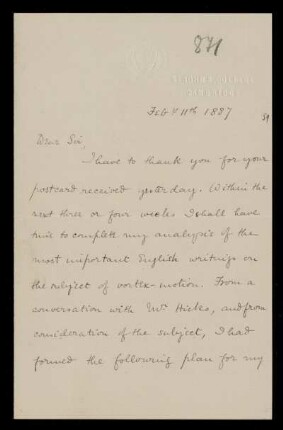 871
Feb y 11th 1887
Dear Sir,
I have to thank you for your
postcard received yesterday. Within the
next three or four weeks I shall have
time to complete my analysis of the
most important English writings on
the subject of vortex-motion. From a
conversation with Mr Hicks, and from
consideration of the subject, I had
formed the following plan for my